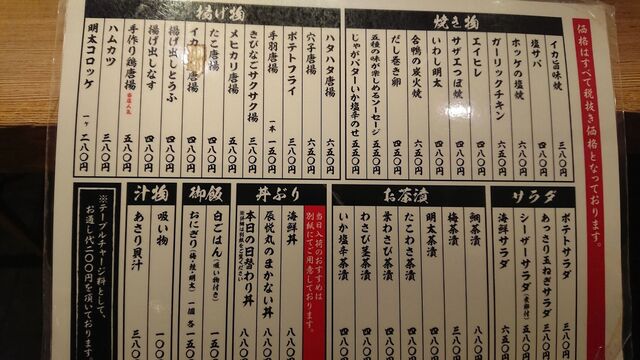 価格はすべて税抜き価格となっております。
焼き物
イカ旨味焼 三八〇円
塩サバ 四八〇円
ホッケの塩焼 六八〇円
ガーリックチキン 六五〇円
エイヒレ 四八〇円
サザエつぼ焼
いわし明太 四八〇円
合鴨の炭火焼
だし巻き卵 四五〇円
五種の味が楽しめるソーセージ
じゃがバターいか塩辛のせ 五五〇円
揚げ物
ハタハタ唐揚 六五〇円
穴子唐揚 六五〇円
ポテトフライ 三五〇円
手羽唐揚 一本 一五〇円
きびなごサクサク揚 三八〇円
メヒカリ唐揚 五八〇円
たこ唐揚 四八〇円
イカ 唐揚 四八〇円
揚げ出しとうふ 四八〇円
揚げ出しなす 四八〇円
手作り鶏唐揚 五八〇円
ハムカツ 三八〇円
明太コロッケ 一ヶ 二八〇円
サラダ
ポテトサラダ 三八〇円
あっさり玉ねぎサラダ 五八〇円
シーザーサラダ 五八〇円
海鮮サラダ 六五〇円
お茶漬
鯛茶漬 八八〇円
梅茶漬 三八〇円
明太茶漬 四八〇円
たこわさ茶漬 四八〇円
葉わさび茶漬 四八〇円
わさび茎茶漬 四八〇円
いか塩辛茶漬 四八〇円
丼ぶり
当日入荷のおすすめは
別紙にてご用意しております。
海鮮丼 八八〇円
辰悦丸のまかない丼 八八〇円
本日の日替わり丼 八八〇円
御飯
白ごはん(吸い物付き) 二五〇円
おにぎり(梅・鮭・明太) 一個 各一五〇円
汁物
吸い物 一〇〇円
あさり貝汁 三八〇円
※テーブルチャージ料として、
お通し代二〇〇円を頂いております。